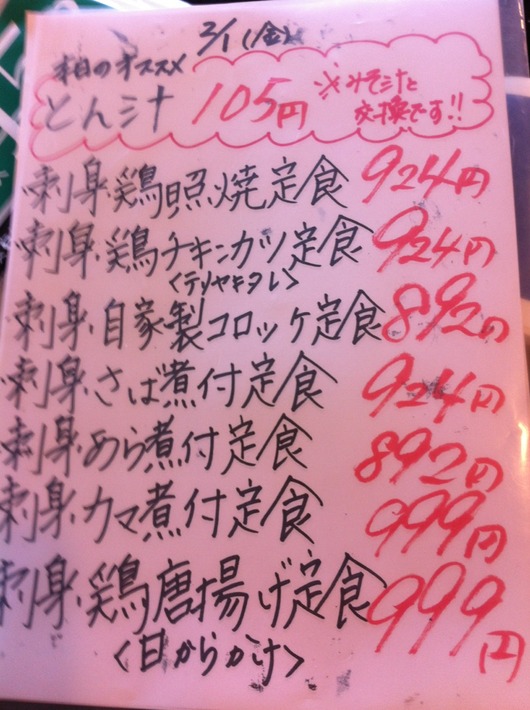 3/1(金)
本日のオススメ
とん汁 105円 ※みそ汁と
交換です!!
刺身・鶏照焼定食 924円
刺身・鶏チキンカツ定食 924円
<テリヤキタレ>
刺身・自家製コロッケ定食 892円
刺身・さば煮付定食 924円
刺身・あら煮付定食 892円
刺身・カマ煮付定食 999円
刺身・鶏唐揚げ定食 999円